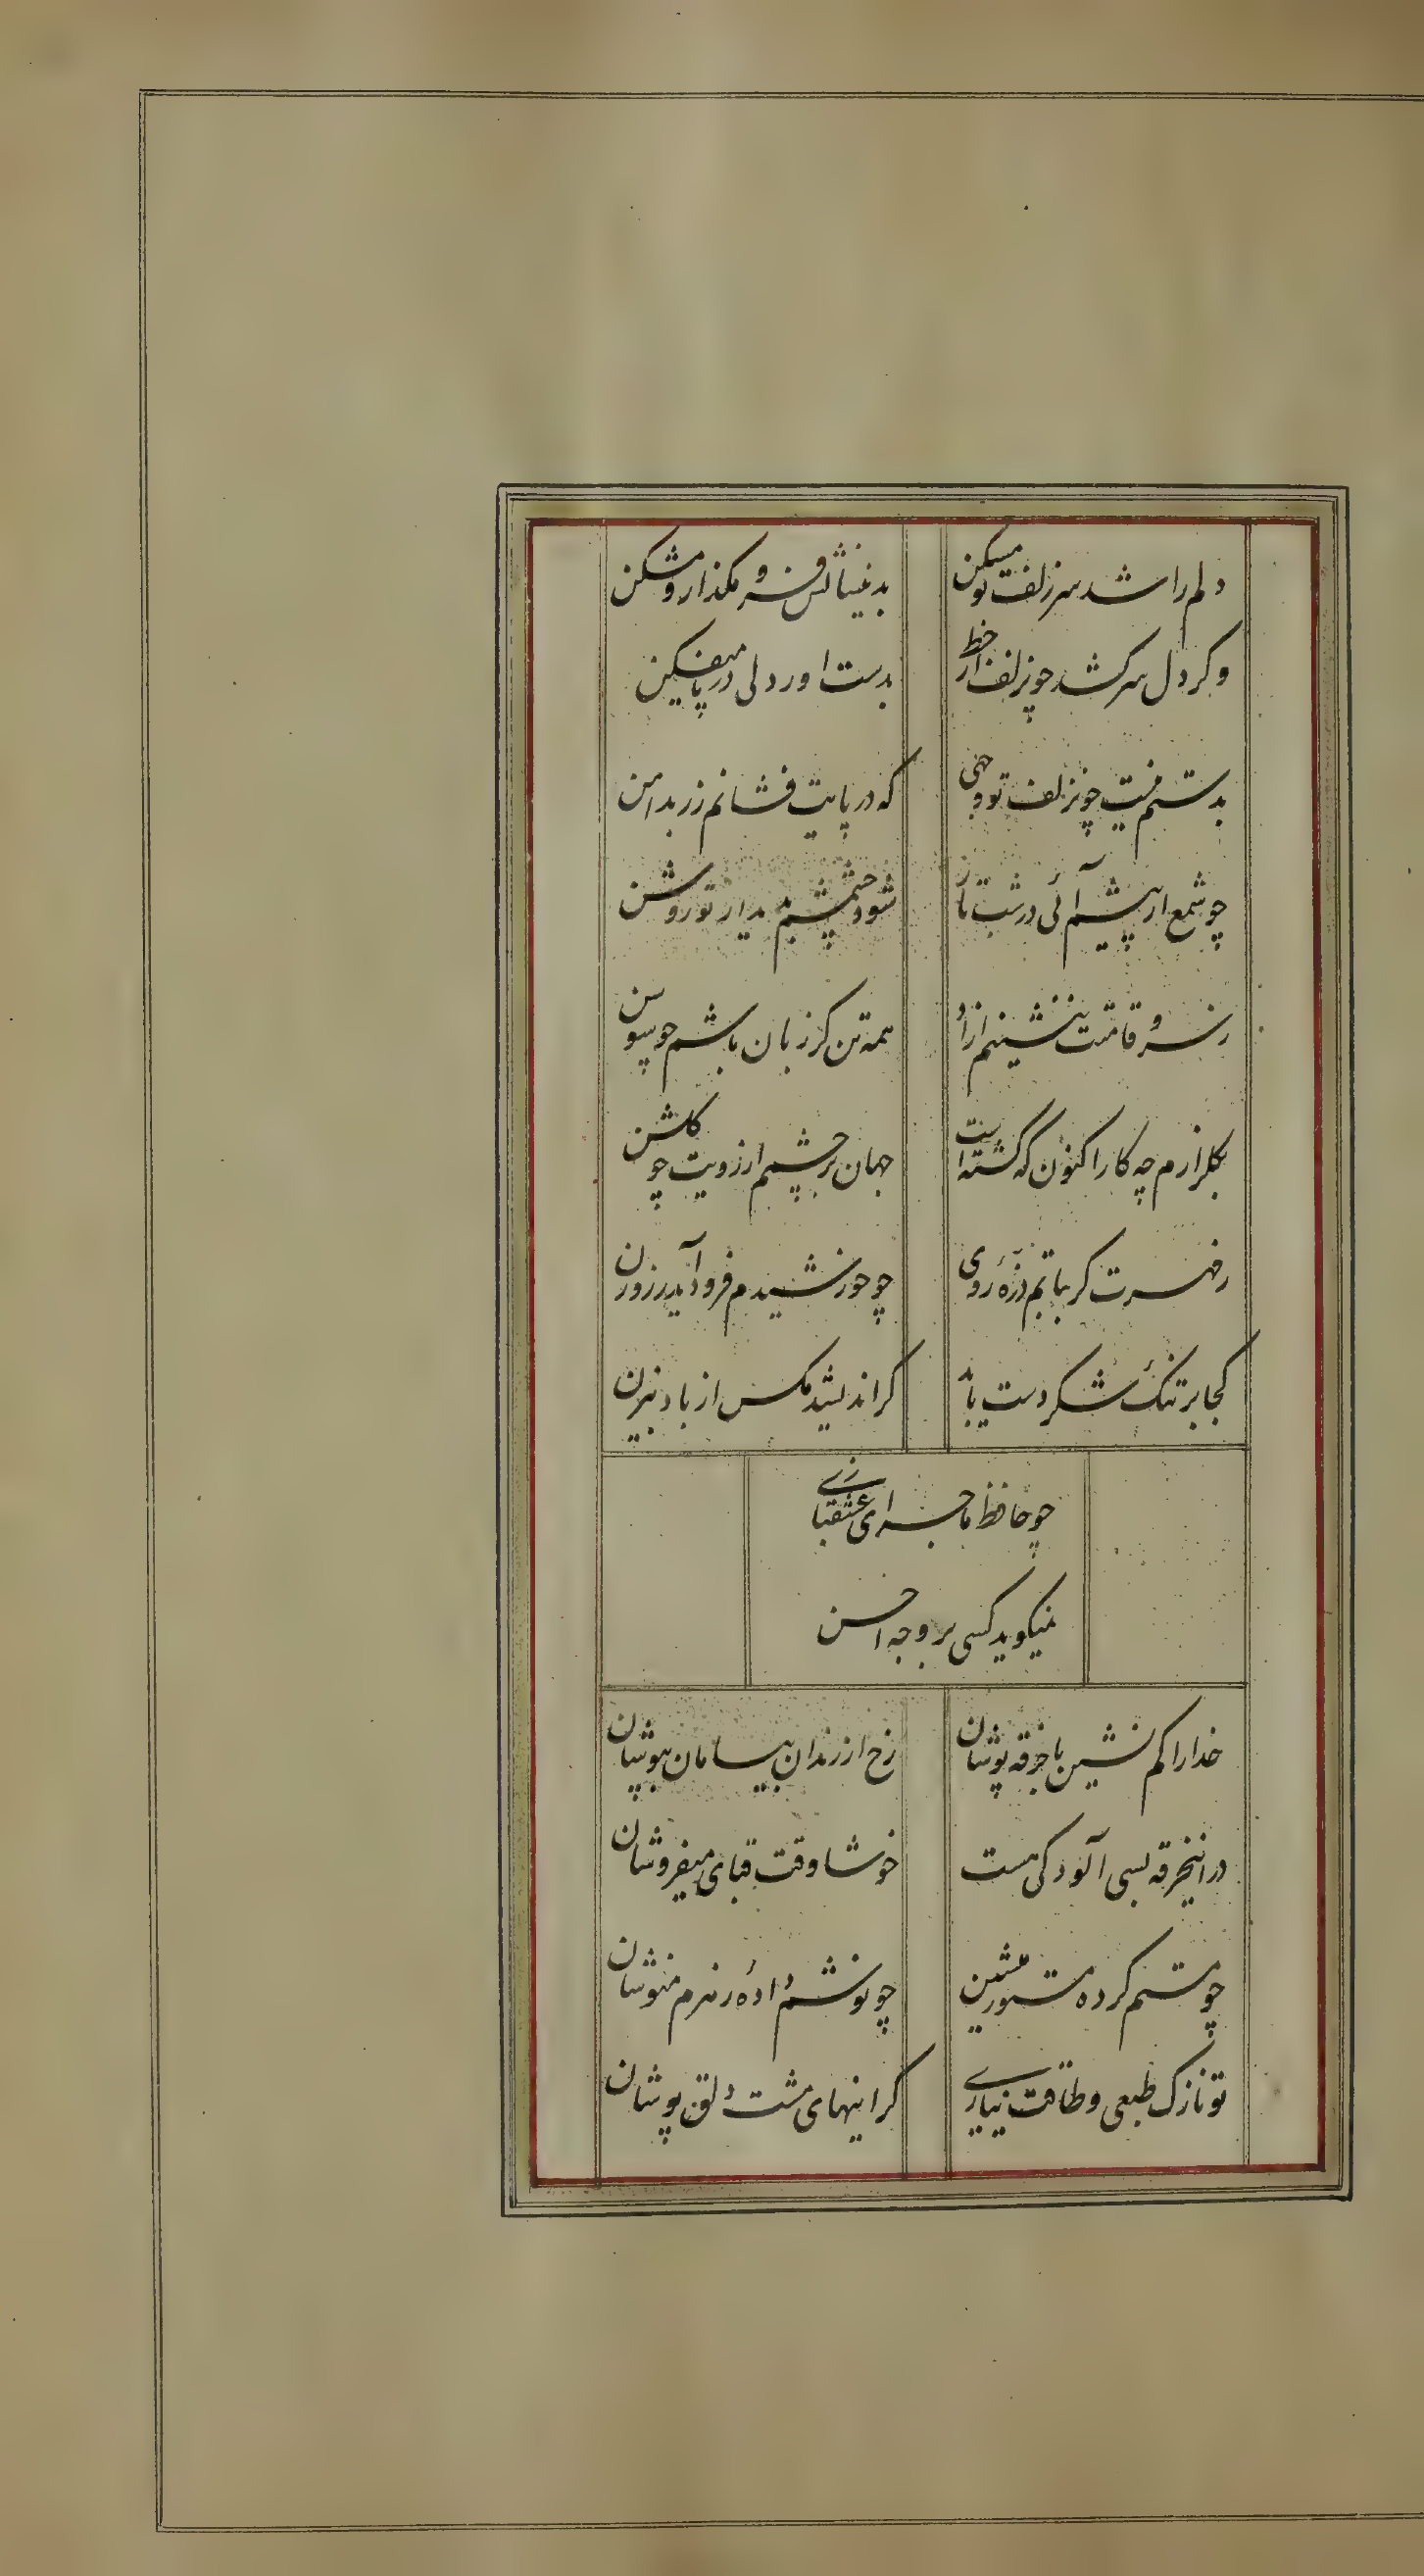 دلم را شد سر زلف تو مسکن بدینسانش فرو مکذار و مشکن
وکر دل سرکشد چو زلف از خط بدست اور دلی در پا میفکن
بدستم نیست چو زلف تو وجهی که در پایت فشانم زر بدامن
چو شمع ار پیشم آئی در شب تار شود چشمم بدیدار تو روشن
ز سرو قامتت ننشینم ازاد همه تن کر زبان باشم چو سوسن
بکلزارم چه کار اکنون که کشته است جهان بر چشمم از رویت چو کلشن
ز مهرت کر بتابم ذره روی چو خورشیدم فرو آید ز روزن
کجا بر تنک شکر دست یابد کر اندیشد مکس از بادبیزن
چو حافظ ماجرای عشقبازی
نمیکوید کسی بر وجه احسن
خدارا کم نشین با خرقه پوشان رخ از رندان بیسامان بپوشان
در اینخرقه بسی آلودکی هست خوشا وقت قبای میفروشان
چو مستم کرده مستور منشین چو نوشم داده زهرم منوشان
تو نازک طبعی و طاقت نیاری کرانیهای مشت دلق پوشان